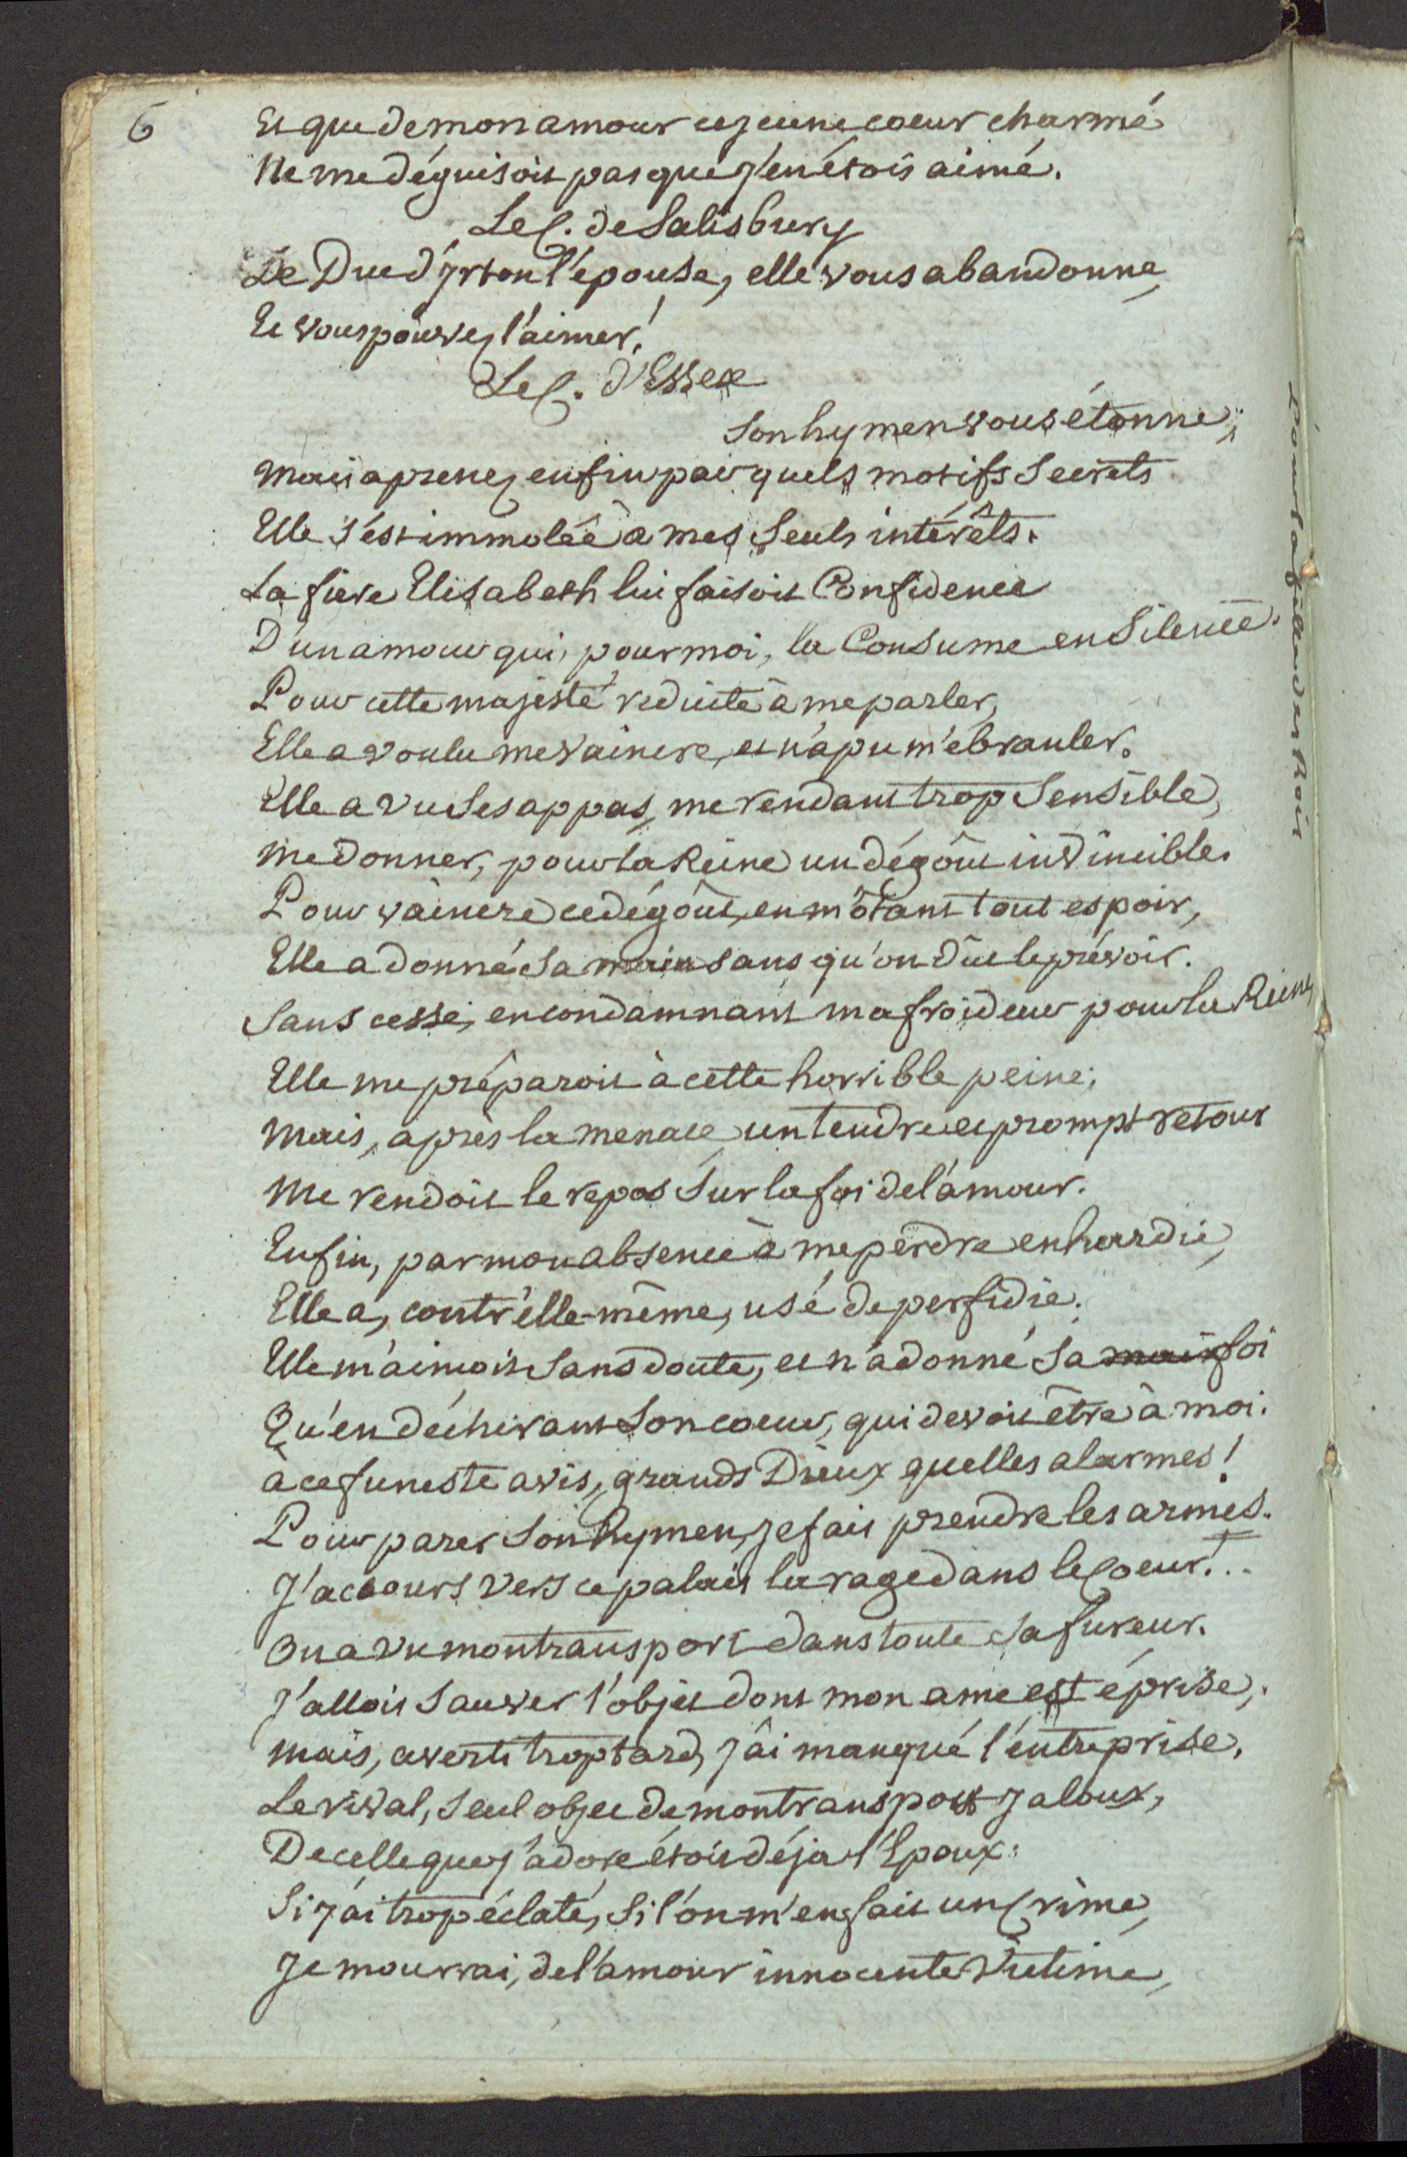 6
Et que de mon amour ce jeune coeur charmé
Ne me déguisoit pas que j'en étois aimé.
Le C. de Salisbury
Le Duc d'Irton l'épouse, elle vous abandonne,
Et vous pouvez l'aimer!
Le C. d'Essex
Son hymen vous étonne;
Mais aprenez enfin par quels motifs secrets
Elle s'est immolée à mes seuls intérêts.
La fiere Elisabeth lui faisoit Confidence
D'un amour qui, pour moi, la Consume en Silence.
Pour cette majesté réduite à me parler,
Elle a voulu me vaincre, et n'a pu m'ébranler.
Elle a vu ses appas, me rendant trop Sensible,
Me donner, pour la Reine un dégôut invincible.
Pour vaincre ce dégôut, en m'ôtant tout espoir,
Elle a donné sa main sans qu'on dût le prévoir.
Sans cesse, en condamnant ma froideur pour la Reine,
Elle me préparoit à cette horrible peine;
Mais, après la menace, un tendre et prompt retour
Me rendoit le repos Sur la foi de l'amour.
Enfin, par mon absence à me perdre enhardie,
Elle a, contr'elle-même, usé de perfidie.
Elle m'aimoit sans doute, et n'a donné sa main foi
Qu'en déchirant son coeur, qui devoit être à moi.
à ce funeste avis, grands Dieux quelles alarmes!
Pour parer son hymen, je fais prendre les armes.
J'accours vers ce palais la rage dans le Coeur!...
On a vu mon transport dans toute sa fureur.
J'allois sauver l'objet dont mon ame est éprise,
Mais, averti trop tard, j'ai manqué l'entreprise.
Le rival, seul objet de mon transport jaloux,
De celle que j'adore étoit déja l'Epoux:
Si j'ai trop éclaté, si l'on m'en fait un Crime,
Je mourrai, de l'amour innocente Victime,